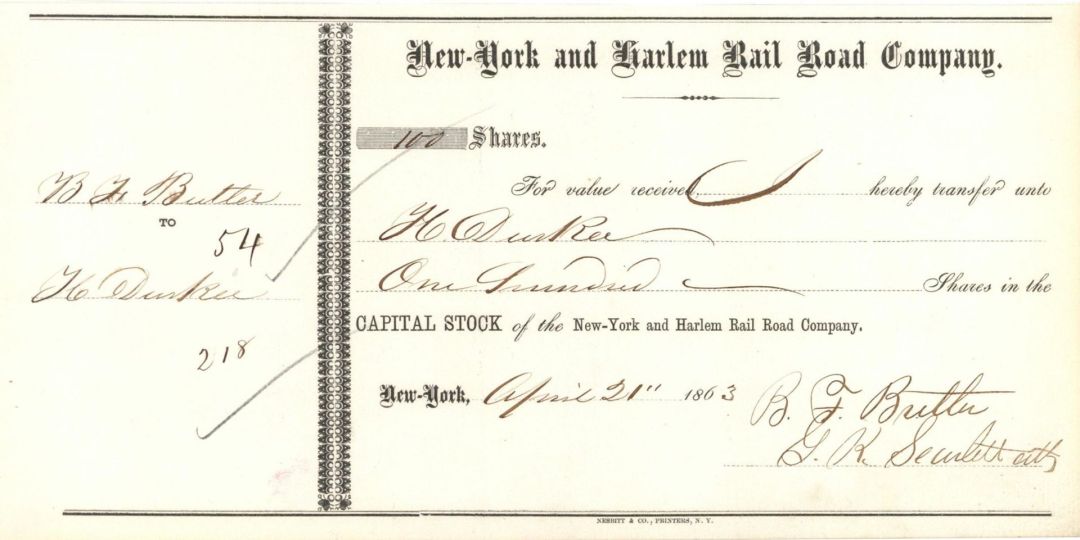 B F Butler
TO
54
H Durkee
218
New-York and Harlem Rail Road Company.
100 Shares.
For value received I hereby transfer unto
H. Durkee
One Hundred Shares in the
CAPITAL STOCK of the New-York and Harlem Rail Road Company.
New-York, April 21" 1863
B. F. Butler
G. K. Scarlett atty
NESBITT & CO., PRINTERS, N. Y.